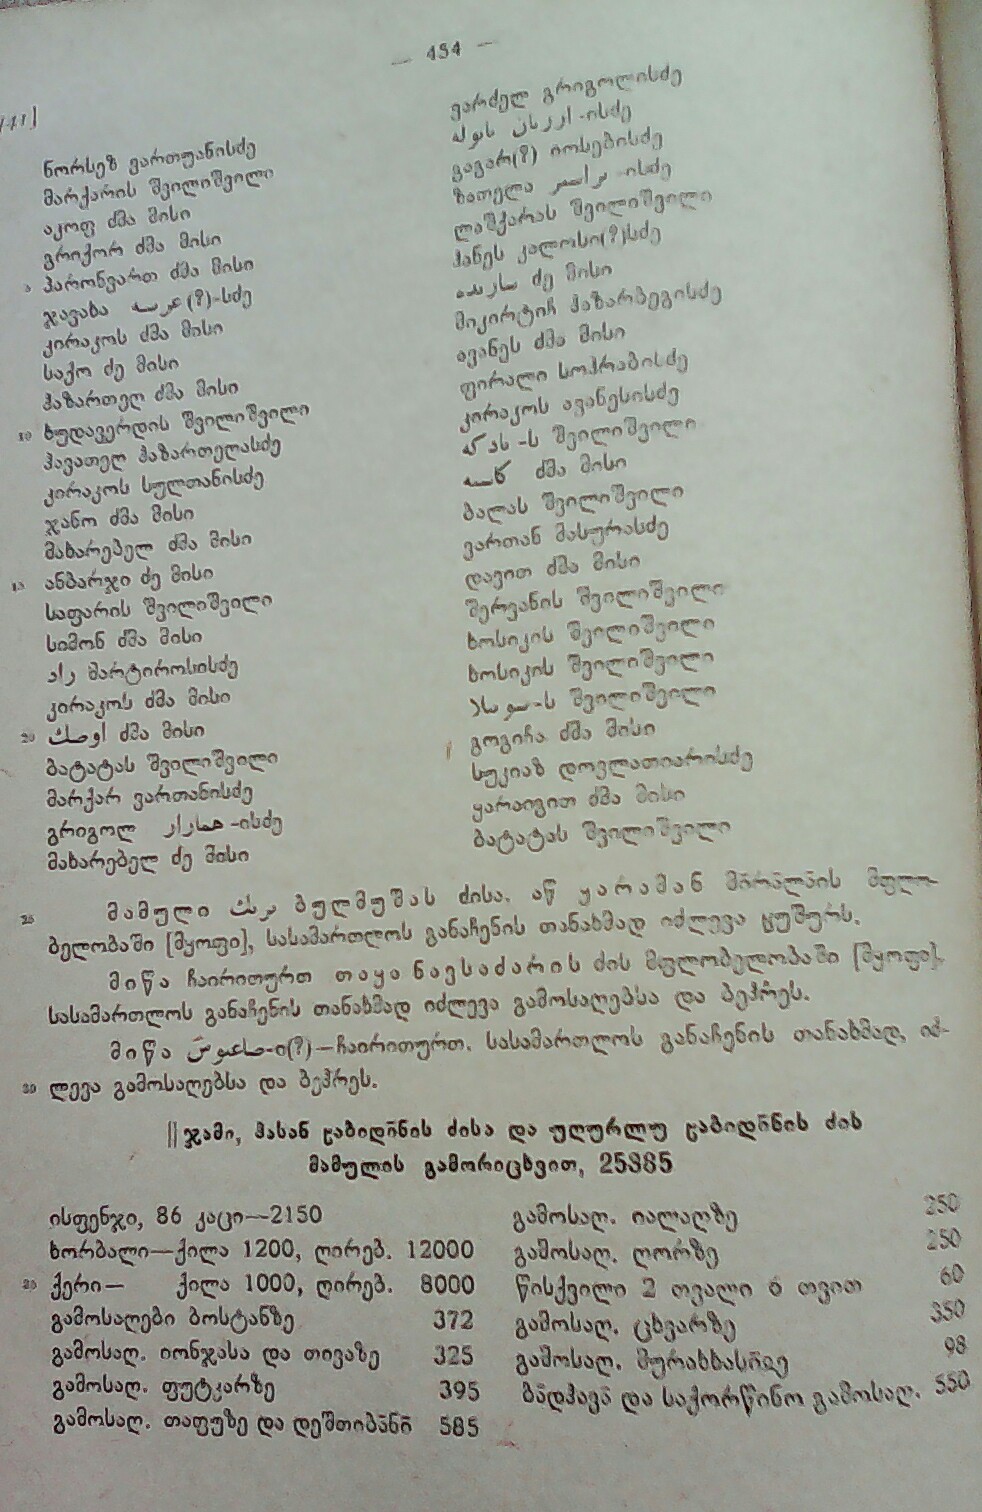 — 454 —
[41]
ნორსეზ ვართუანისძე
მარქარის შვილიშვილი
აკოფ ძმა მისი
გრიქორ ძმა მისი
5 პარონვართ ძმა მისი
ჯავაბა (?)-სძე
კირაკოს ძმა მისი
საქო ძე მისი
ჰაზართელ ძმა მისი
10 ხუდავერდის შვილიშვილი
ჰავათელ ჰაზართელასძე
კირაკოს სულთანისძე
ჯანო ძმა მისი
მახარებელ ძმა მისი
15 ანბარჯი ძე მისი
საფარის შვილიშვილი
სიმონ ძმა მისი
მარტიროსისძე
კირაკოს ძმა მისი
20 ძმა მისი
ბატატას შვილიშვილი
მარქარ ვართანისძე
გრიგოლ -ისძე
მახარებელ ძე მისი
ვარძელ გრიგოლისძე
-ისძე
გაგარ(?) იოსებისძე
ზათელა -ისძე
ლაშქარას შვილიშვილი
ჰანეს კალოსი(?)სძე
ძე მისი
მიკირტიჩ ჰაზარბეგისძე
ავანეს ძმა მისი
ფირალი სოჰრაბისძე
კირაკოს ავანესისძე
-ს შვილიშვილი
ძმა მისი
ბალას შვილიშვილი
ვართან მასურასძე
დავით ძმა მისი
შერვანის შვილიშვილი
ხოსიკის შვილიშვილი
ხოსიკის შვილიშვილი
-ს შვილიშვილი
გოგიჩა ძმა მისი
სუკიაზ დოვლათიარისძე
ყარაივით ძმა მისი
ბატატას შვილიშვილი
25 მამული ბულმუშას ძისა. აწ ყარამან მირალაის მფლო-
ბელობაში [მყოფი], სასამართლოს განაჩენის თანახმად იძლევა ყუშურს.
მიწა ჩაირითურთ თაყა ნავსადარის ძის მფლობელობაში [მყოფი],
სასამართლოს განაჩენის თანახმად იძლევა გამოსაღებსა და ბეჰრეს.
მიწა -ი(?)—ჩაირითურთ. სასამართლოს განაჩენის თანახმად, იძ-
30 ლევა გამოსაღებსა და ბეჰრეს.
|| ჯამი, ჰასან ჲაბიდინის ძისა და უღურლუ ჲაბიდინის ძის
მამულის გამორიცხვით, 25385
ისფენჯი, 86 კაცი—2150
ხორბალი—ქილა 1200, ღირებ. 12000
35 ქერი— ქილა 1000, ღირებ. 8000
გამოსაღები ბოსტანზე 372
გამოსაღ. იონჯასა და თივაზე 325
გამოსაღ. ფუტკარზე 395
გამოსაღ. თაფუზე და დეშთიბანი 585
გამოსაღ. იალაღზე 250
გამოსაღ. ღორზე 250
წისქვილი 2 თვალი 6 თვით 60
გამოსაღ. ცხვარზე 350
გამოსაღ. მურახხასიჲე 98
ბადჰავა და საქორწინო გამოსაღ. 550